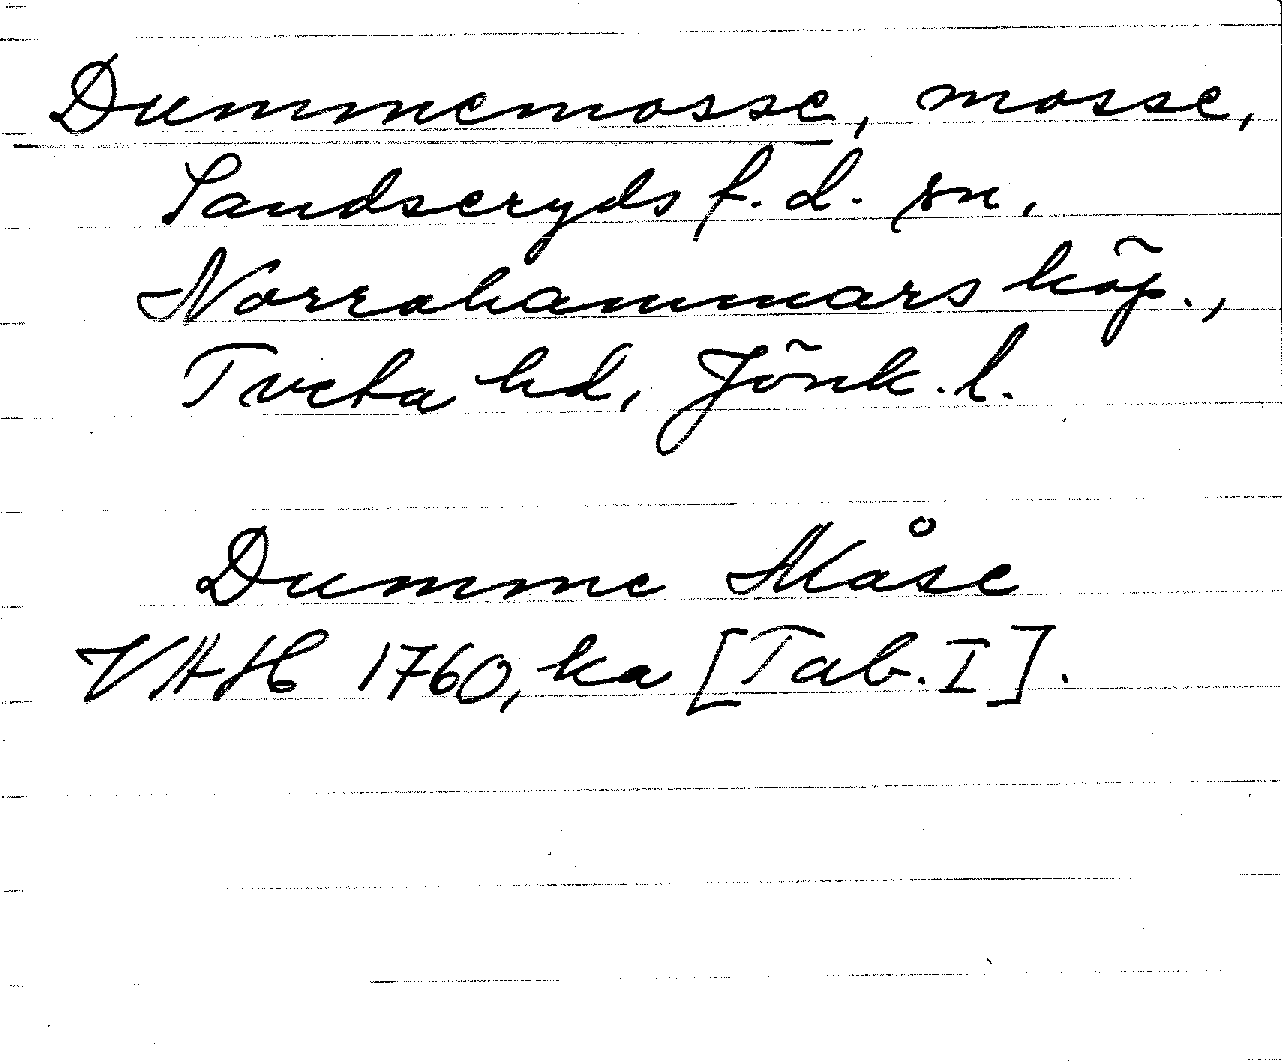 Dummemosse, mosse,
Sandseryds f. d. sn,
Norrahammars köp.,
Tveta hd, Jönk. l.
Dumme Måse
VAH 1760, ka [Tab. I].